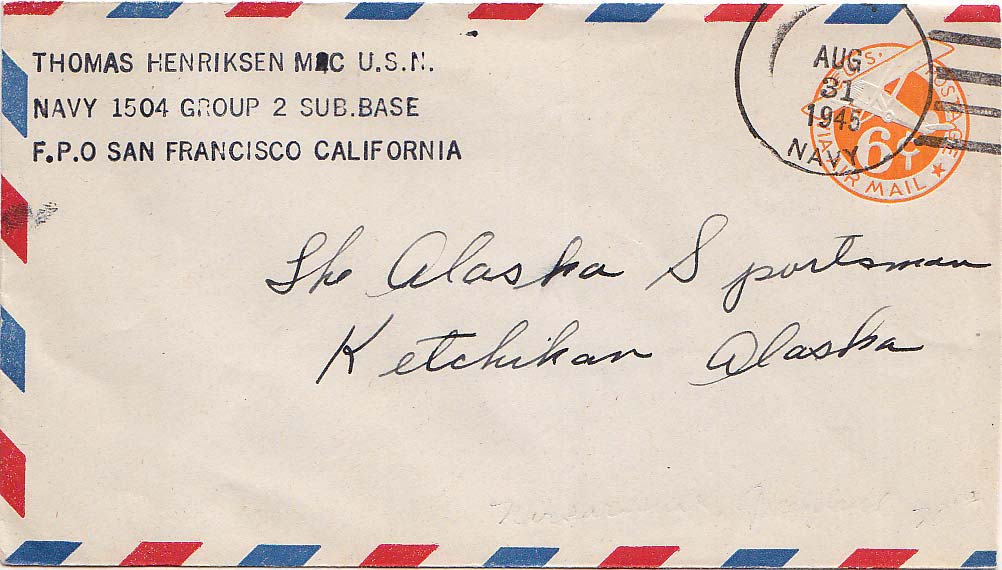 THOMAS HENRIKSEN U.S.N.
NAVY 1504 GROUP 2 SUB.BASE
F.P.O SAN FRANCISCO CALIFORNIA
AUG
31
1945
NAVY
U.S. POSTAGE
6¢
VIA AIR MAIL
The Alaska Sportsman
Ketchikan Alaska